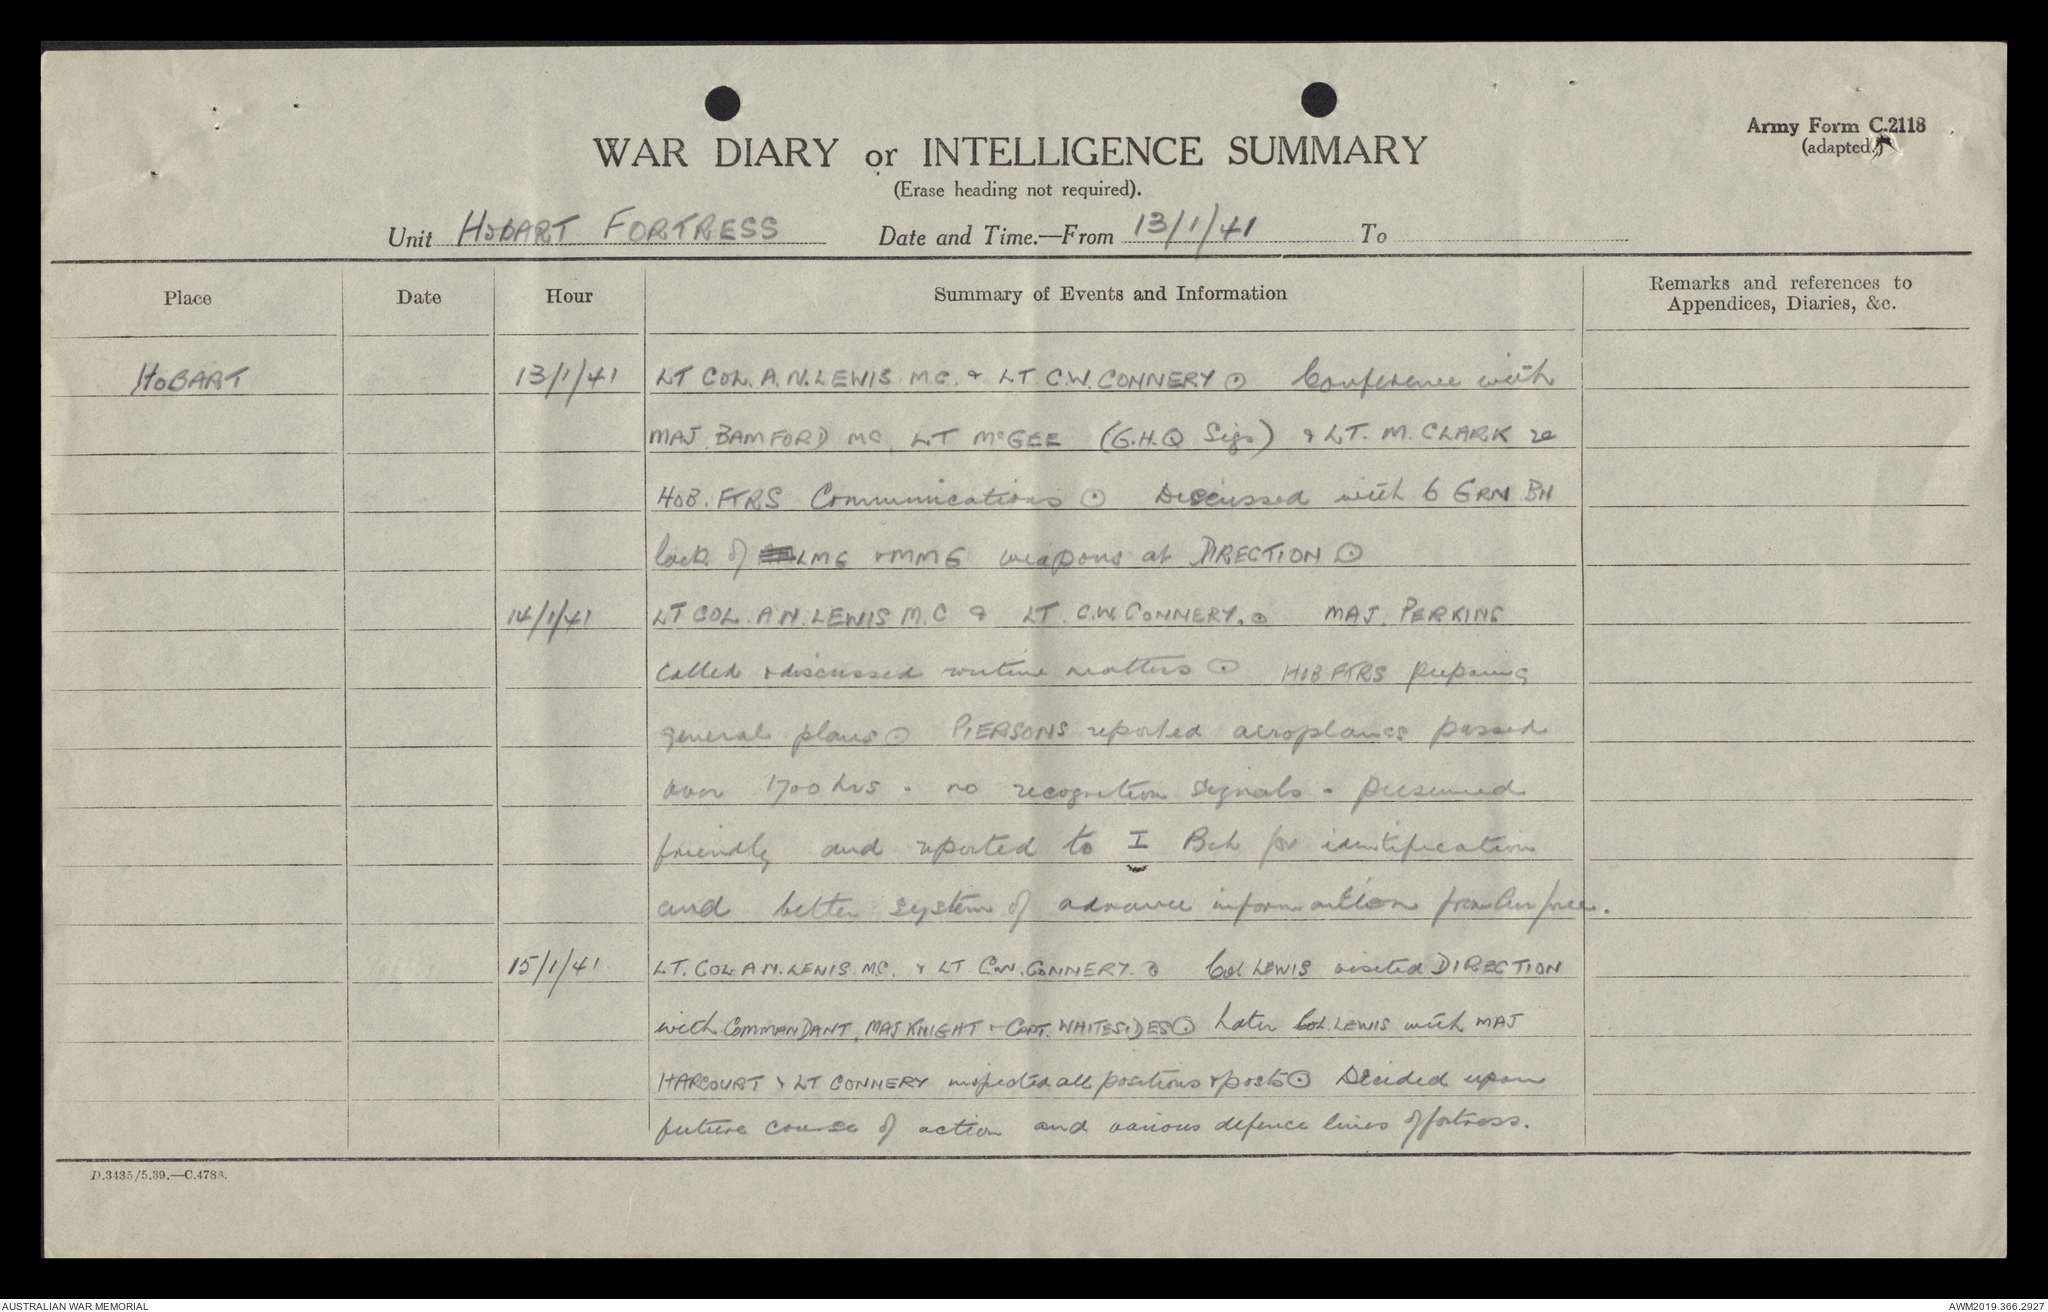 Army Form C.2118
(adapted.)
WAR DIARY or INTELLIGENCE SUMMARY
(Erase heading not required).
Unit HOBART FORTRESS Date and Time.—From 13/1/41 To
Place Date Hour Summary of Events and Information Remarks and references to Appendices, Diaries, &c.
HOBART 13/1/41 LT COL. A.N. LEWIS M.C. & LT. C.W. CONNERY ⊙ Conference with
MAJ. BAMFORD MC, LT McGEE (G.H.Q Sigs) & LT. M. CLARK re
HOB. FTRS Communications ⊙ Discussed with 6 GRN BN
lack of LMG & MMG weapons at DIRECTION ⊙
14/1/41 LT COL. A.N. LEWIS M.C & LT. C.W. CONNERY. ⊙ MAJ. PERKINS
called & discussed routine matters ⊙ HOB FTRS preparing
general plans ⊙ PIERSONS reported aeroplanes passed
over 1700 hrs - no recognition signals - presumed
friendly and reported to I Bch for identification
and better system of advance information from Air force.
15/1/41 LT. COL A.N. LEWIS M.C. & LT C.W. CONNERY. ⊙ Col LEWIS visited DIRECTION
with COMMANDANT, MAJ KNIGHT & CAPT. WHITESIDES ⊙ Later Col. LEWIS with MAJ
HARCOURT & LT CONNERY inspected all positions & posts ⊙ Decided upon
future course of action and various defence lines of fortress.
D.3435/5.39.—C.4783.
AUSTRALIAN WAR MEMORIAL
AWM2019.366.2927